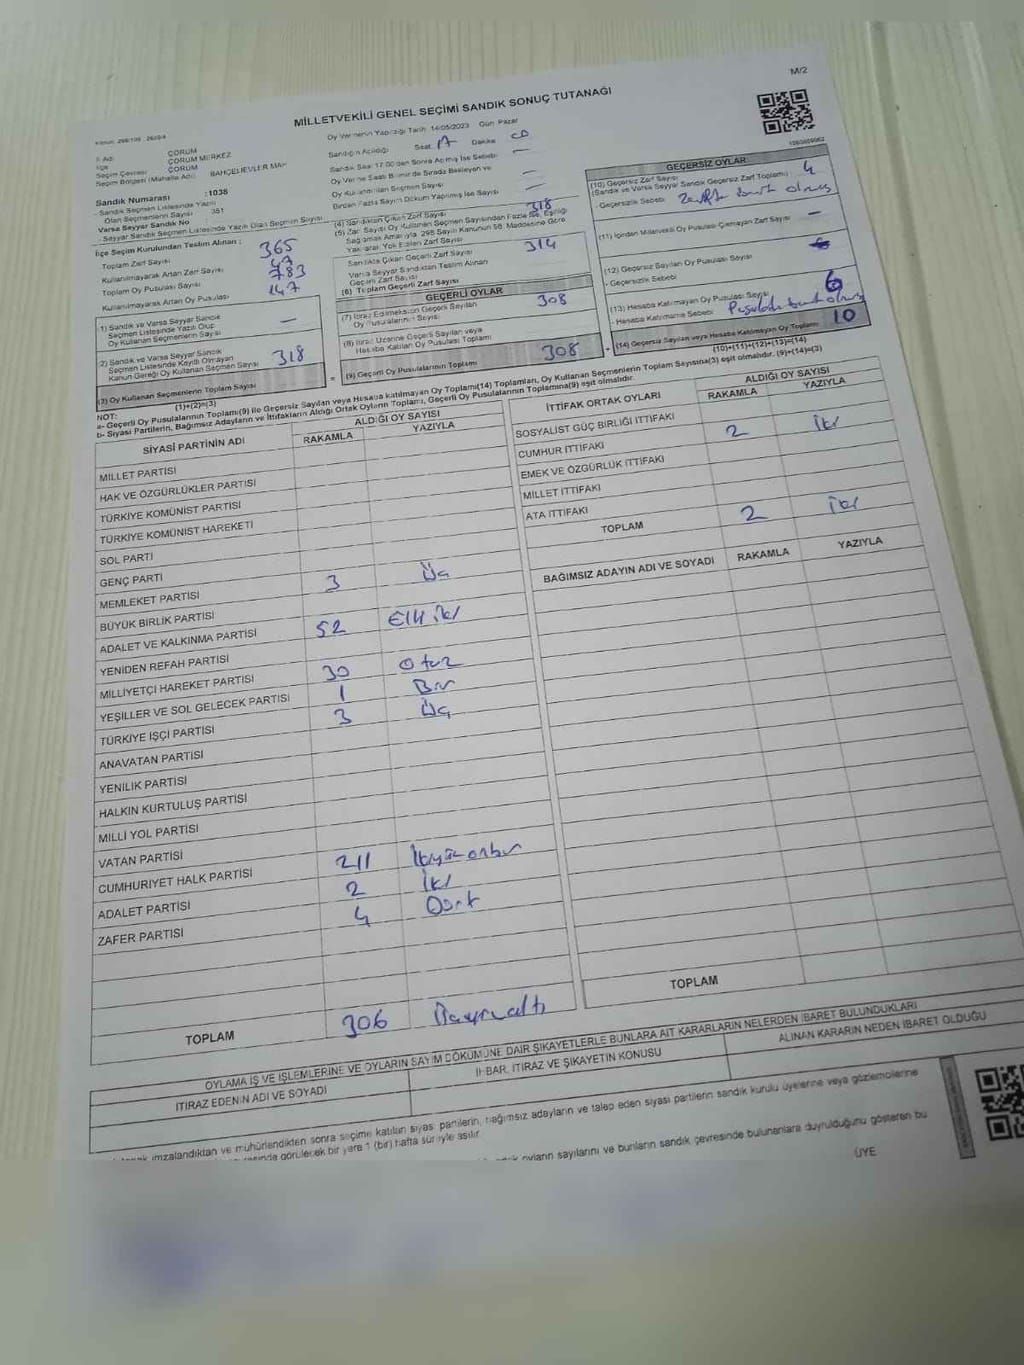 M/2
MİLLETVEKİLİ GENEL SEÇİMİ SANDIK SONUÇ TUTANAĞI
Oy Vermenin Yapıldığı Tarih: 14/05/2023 Gün: Pazar
İl Adı ÇORUM
İlçe ÇORUM MERKEZ
Seçim Çevresi ÇORUM
Seçim Bölgesi (Mahalle Adı) BAHÇELİEVLER MAH
Sandık Numarası : 1038
- Sandık Seçmen Listesinde Yazılı
Olan Seçmenlerin Sayısı 351
Varsa Seyyar Sandık No
- Seyyar Sandık Seçmen Listesinde Yazılı Olan Seçmen Sayısı
İlçe Seçim Kurulundan Teslim Alınan :
Toplam Zarf Sayısı 365
Kullanılmayarak Artan Zarf Sayısı 47
Toplam Oy Pusulası Sayısı
Kullanılmayarak Artan Oy Pusulası 147
1) Sandık ve Varsa Seyyar Sandık
Seçmen Listesinde Yazılı Olup
Oy Kullanan Seçmenlerin Sayısı —
2) Sandık ve Varsa Seyyar Sandık
Seçmen Listesinde Kayıtlı Olmayan
Kanun Gereği Oy Kullanan Seçmen Sayısı 318
(3) Oy Kullanan Seçmenlerin Toplam Sayısı
(1)+(2)=(3)
Sandığın Açıldığı Saat Dakika
Sandık Saat 17.00'den Sonra Açılmış İse Sebebi: —
Oy Verme Saati Bitiminde Sırada Bekleyen ve
Oy Kullandırılan Seçmen Sayısı —
Birden Fazla Sayım Döküm Yapılmış İse Sayısı —
(4) Sandıktan Çıkan Zarf Sayısı 318
(5) Zarf Sayısı Oy Kullanan Seçmen Sayısından Fazla İse, Eşitliği
Sağlamak Amacıyla 298 Sayılı Kanunun 98. Maddesine Göre
Yakılarak Yok Edilen Zarf Sayısı
Sandıkta Çıkan Geçerli Zarf Sayısı 314
Varsa Seyyar Sandıktan Teslim Alınan
Geçerli Zarf Sayısı
(6) Toplam Geçerli Zarf Sayısı
GEÇERLİ OYLAR
(7) İtiraz Edilmeksizin Geçerli Sayılan
Oy Pusulalarının Sayısı 308
(8) İtiraz Üzerine Geçerli Sayılan veya
Hesaba Katılan Oy Pusulası Toplamı
= (9) Geçerli Oy Pusulalarının Toplamı 308
GEÇERSİZ OYLAR
(10) Geçersiz Zarf Sayısı
(Sandık ve Varsa Seyyar Sandık Geçersiz Zarf Toplamı) : 4
- Geçersizlik Sebebi
(11) İçinden Milletvekili Oy Pusulası Çıkmayan Zarf Sayısı —
(12) Geçersiz Sayılan Oy Pusulası Sayısı
- Geçersizlik Sebebi
(13) Hesaba Katılmayan Oy Pusulası Sayısı 6
- Hesaba Katılmama Sebebi
+ (14) Geçersiz Sayılan veya Hesaba Katılmayan Oy Toplamı 10
(10)+(11)+(12)+(13)=(14)
NOT:
a- Geçerli Oy Pusulalarının Toplamı(9) ile Geçersiz Sayılan veya Hesaba katılmayan Oy Toplamı(14) Toplamları, Oy Kullanan Seçmenlerin Toplam Sayısına(3) eşit olmalıdır. (9)+(14)=(3)
b- Siyasi Partilerin, Bağımsız Adayların ve İttifakların Aldığı Ortak Oyların Toplamı, Geçerli Oy Pusulalarının Toplamına(9) eşit olmalıdır.
SİYASİ PARTİNİN ADI ALDIĞI OY SAYISI
RAKAMLA YAZIYLA
MİLLET PARTİSİ
HAK VE ÖZGÜRLÜKLER PARTİSİ
TÜRKİYE KOMÜNİST PARTİSİ
TÜRKİYE KOMÜNİST HAREKETİ
SOL PARTİ
GENÇ PARTİ
MEMLEKET PARTİSİ 3 Üç
BÜYÜK BİRLİK PARTİSİ
ADALET VE KALKINMA PARTİSİ 52 Elli iki
YENİDEN REFAH PARTİSİ
MİLLİYETÇİ HAREKET PARTİSİ 30 Otuz
YEŞİLLER VE SOL GELECEK PARTİSİ 1 Bir
TÜRKİYE İŞÇİ PARTİSİ 3 Üç
ANAVATAN PARTİSİ
YENİLİK PARTİSİ
HALKIN KURTULUŞ PARTİSİ
MİLLİ YOL PARTİSİ
VATAN PARTİSİ
CUMHURİYET HALK PARTİSİ 211 İkiyüzonbir
ADALET PARTİSİ 2 İki
ZAFER PARTİSİ 4 Dört
TOPLAM 306
İTTİFAK ORTAK OYLARI ALDIĞI OY SAYISI
RAKAMLA YAZIYLA
SOSYALİST GÜÇ BİRLİĞİ İTTİFAKI
CUMHUR İTTİFAKI 2 İki
EMEK VE ÖZGÜRLÜK İTTİFAKI
MİLLET İTTİFAKI
ATA İTTİFAKI
TOPLAM 2 İki
BAĞIMSIZ ADAYIN ADI VE SOYADI RAKAMLA YAZIYLA
TOPLAM
OYLAMA İŞ VE İŞLEMLERİNE VE OYLARIN SAYIM DÖKÜMÜNE DAİR ŞİKAYETLERLE BUNLARA AİT KARARLARIN NELERDEN İBARET BULUNDUKLARI
İTİRAZ EDENİN ADI VE SOYADI İHBAR, İTİRAZ VE ŞİKAYETİN KONUSU ALINAN KARARIN NEDEN İBARET OLDUĞU
imzalandıktan ve mühürlendikten sonra seçime katılan siyasi partilerin, bağımsız adayların ve talep eden siyasi partilerin sandık kurulu üyelerine veya gözlemcilerine
görülecek bir yere 1 (bir) hafta süreyle asılır.
oyların sayılarını ve bunların sandık çevresinde bulunanlara duyrulduğunu gösteren bu
ÜYE